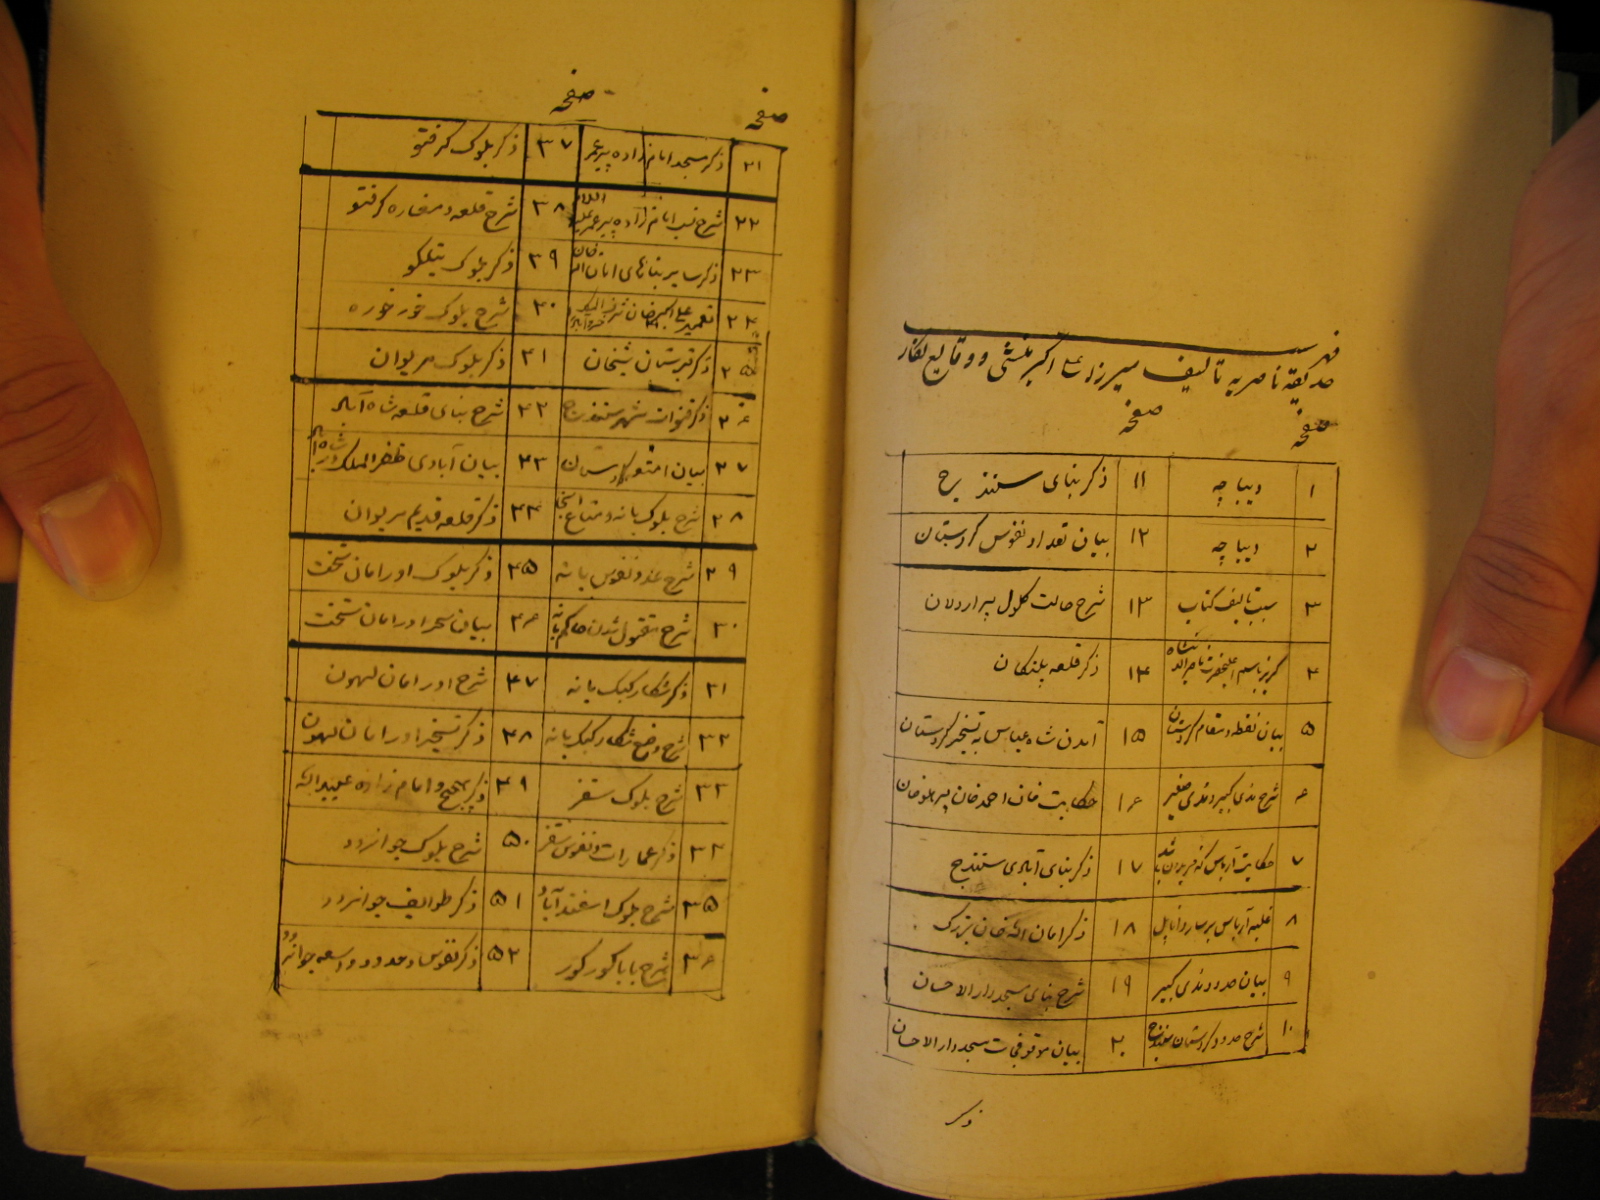 فهرست
حدیقه ناصریه تالیف میرزا علی اکبر منشی و وقایع نگار
صفحه صفحه
۱ دیباچه ۱۱ ذکر بنای سنندج
۲ دیباچه ۱۲ بیان تعداد نفوس کردستان
۳ سبب تالیف کتاب ۱۳ شرح حالت کلول پسر اردلان
۴ گریز باسم اعلیحضرت ناصرالدینشاه ۱۴ ذکر قلعه پلنکان
۵ بیان نقطه و مقام کردستان ۱۵ آمدن شاه عباس به تسخیر کردستان
۶ شرح مدی کبیر و مدی صغیر ۱۶ حکایت خان احمد خان پسر هلوخان
۷ حکایت آرباس که فریدون باشد ۱۷ ذکر بنای آبادی سنندج
۸ غلبه آرباس بر ساردناپل ۱۸ ذکر امان الله خان بزرگ
۹ بیان حدود مدی کبیر ۱۹ شرح بنای مسجد دارالاحسان
۱۰ شرح حدود کردستان سنندج ۲۰ بیان موقوفجات مسجد دارالاحسان
ذکر
صفحه صفحه
۲۱ ذکر مسجد امام زاده پیر عمر ۳۷ ذکر بلوک کرفتو
۲۲ شرح نسب امام زاده پیر عمر علیه السلام ۳۸ شرح قلعه و مغاره کرفتو
۲۳ ذکر سایر بناهای امان الله خان ۳۹ ذکر بلوک تیلکو
۲۴ تعمیر علی اکبر خان شرف الملک خسروآباد ۴۰ شرح بلوک خورخوره
۲۵ ذکر قبرستان شیخان ۴۱ ذکر بلوک مریوان
۲۶ ذکر قنوات شهر سنندج ۴۲ شرح بنای قلعه شاه آباد
۲۷ بیان امتعه کردستان ۴۳ بیان آبادی ظفرالملک در شاه آباد
۲۸ شرح بلوک بانه و متاع انجا ۴۴ ذکر قلعه قدیم مریوان
۲۹ شرح عدد نفوس بانه ۴۵ ذکر بلوک اورامان تخت
۳۰ شرح مقتول شدن حاکم بانه ۴۶ بیان سحر اورامان تخت
۳۱ ذکر شکار کبک بانه ۴۷ شرح اورامان لهون
۳۲ شرح وضع شکار کبک بانه ۴۸ ذکر تسخیر اورامان لهون
۳۳ شرح بلوک سقز ۴۹ ذکر بجیج و امام زاده عبیدالله
۳۴ ذکر عمارات و نفوس سقز ۵۰ شرح بلوک جوانرود
۳۵ شرح بلوک اسفندآباد ۵۱ ذکر طوایف جوانرود
۳۶ شرح بابا کورکور ۵۲ ذکر نفوس و حدود و اسعه جوانرود